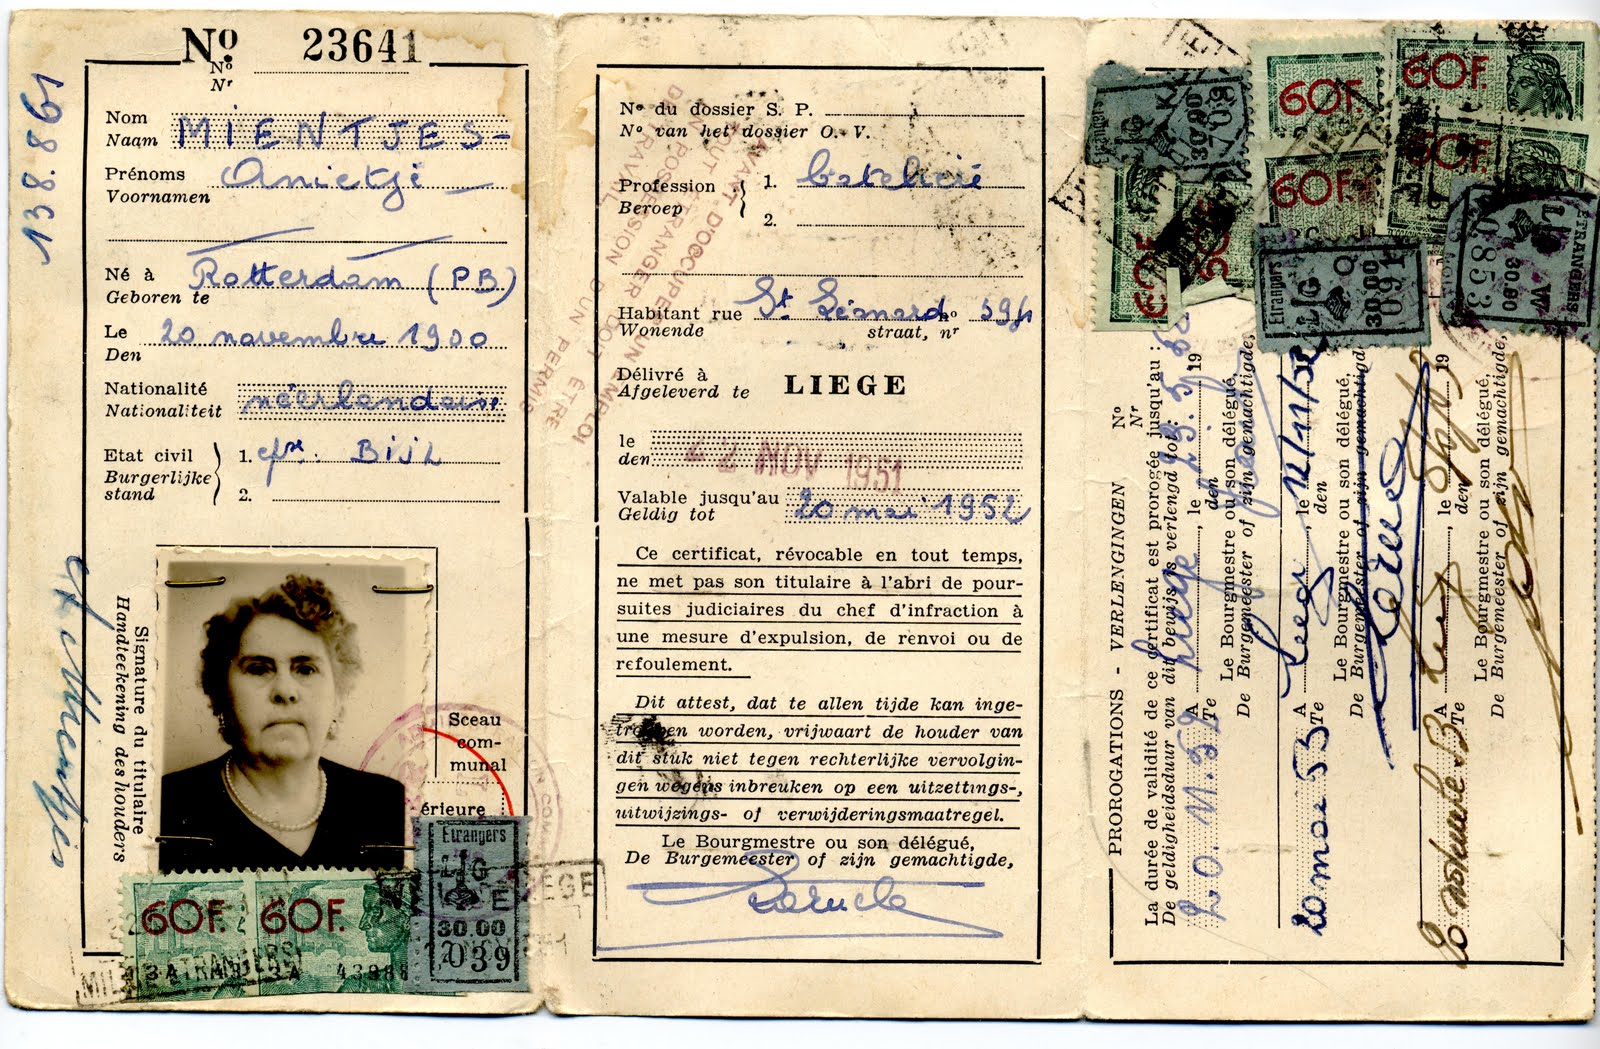 13.8.861
Nº 23641
Nº
Nr
Nom
Naam MIENTJES-
Prénoms
Voornamen Anietje
Né à
Geboren te Rotterdam (PB)
Le
Den 20 novembre 1900
Nationalité
Nationaliteit néerlandaise
Etat civil
Burgerlijke
stand
1. epse. BIJL
2.
Signature du titulaire
Handteekening des houders
Sceau
com-
munal
érieure
60F. 60F.
Etrangers
LIEGE
30.00
039
Nº du dossier S. P.
Nº van het dossier O. V.
Profession
Beroep
1. batelière
2.
AVANT D'OCCUPER UN EMPLOI
TOUT ETRANGER DOIT ÊTRE
EN POSSESSION D'UN PERMIS
DE TRAVAIL
Habitant rue St Léonard nº 594
Wonende straat, nr
Délivré à
Afgeleverd te LIEGE
le
den 22 NOV 1951
Valable jusqu'au
Geldig tot 20 mai 1952
Ce certificat, révocable en tout temps,
ne met pas son titulaire à l'abri de pour-
suites judiciaires du chef d'infraction à
une mesure d'expulsion, de renvoi ou de
refoulement.
Dit attest, dat te allen tijde kan inge-
trokken worden, vrijwaart de houder van
dit stuk niet tegen rechterlijke vervolgin-
gen wegens inbreuken op een uitzettings-,
uitwijzings- of verwijderingsmaatregel.
Le Bourgmestre ou son délégué,
De Burgemeester of zijn gemachtigde,
PROROGATIONS - VERLENGINGEN Nº
Nr
La durée de validité de ce certificat est prorogée jusqu'au :
De geldigheidsduur van dit bewijs verlengd tot :
20.11.52
A Liège, le 23.5.52 19
Te den
Le Bourgmestre ou son délégué,
De Burgemeester of zijn gemachtigde,
20 mai 53
A Liège, le 12/11/52
Te den
Le Bourgmestre ou son délégué,
De Burgemeester of zijn gemachtigde,
20 novembre 53
A, le 19
Te den
Le Bourgmestre ou son délégué,
De Burgemeester of zijn gemachtigde,
60F.
60F.
60F.
60F.
60F.
Etrangers
30.00
Etrangers
30.00
ETRANGERS
30.00
0853